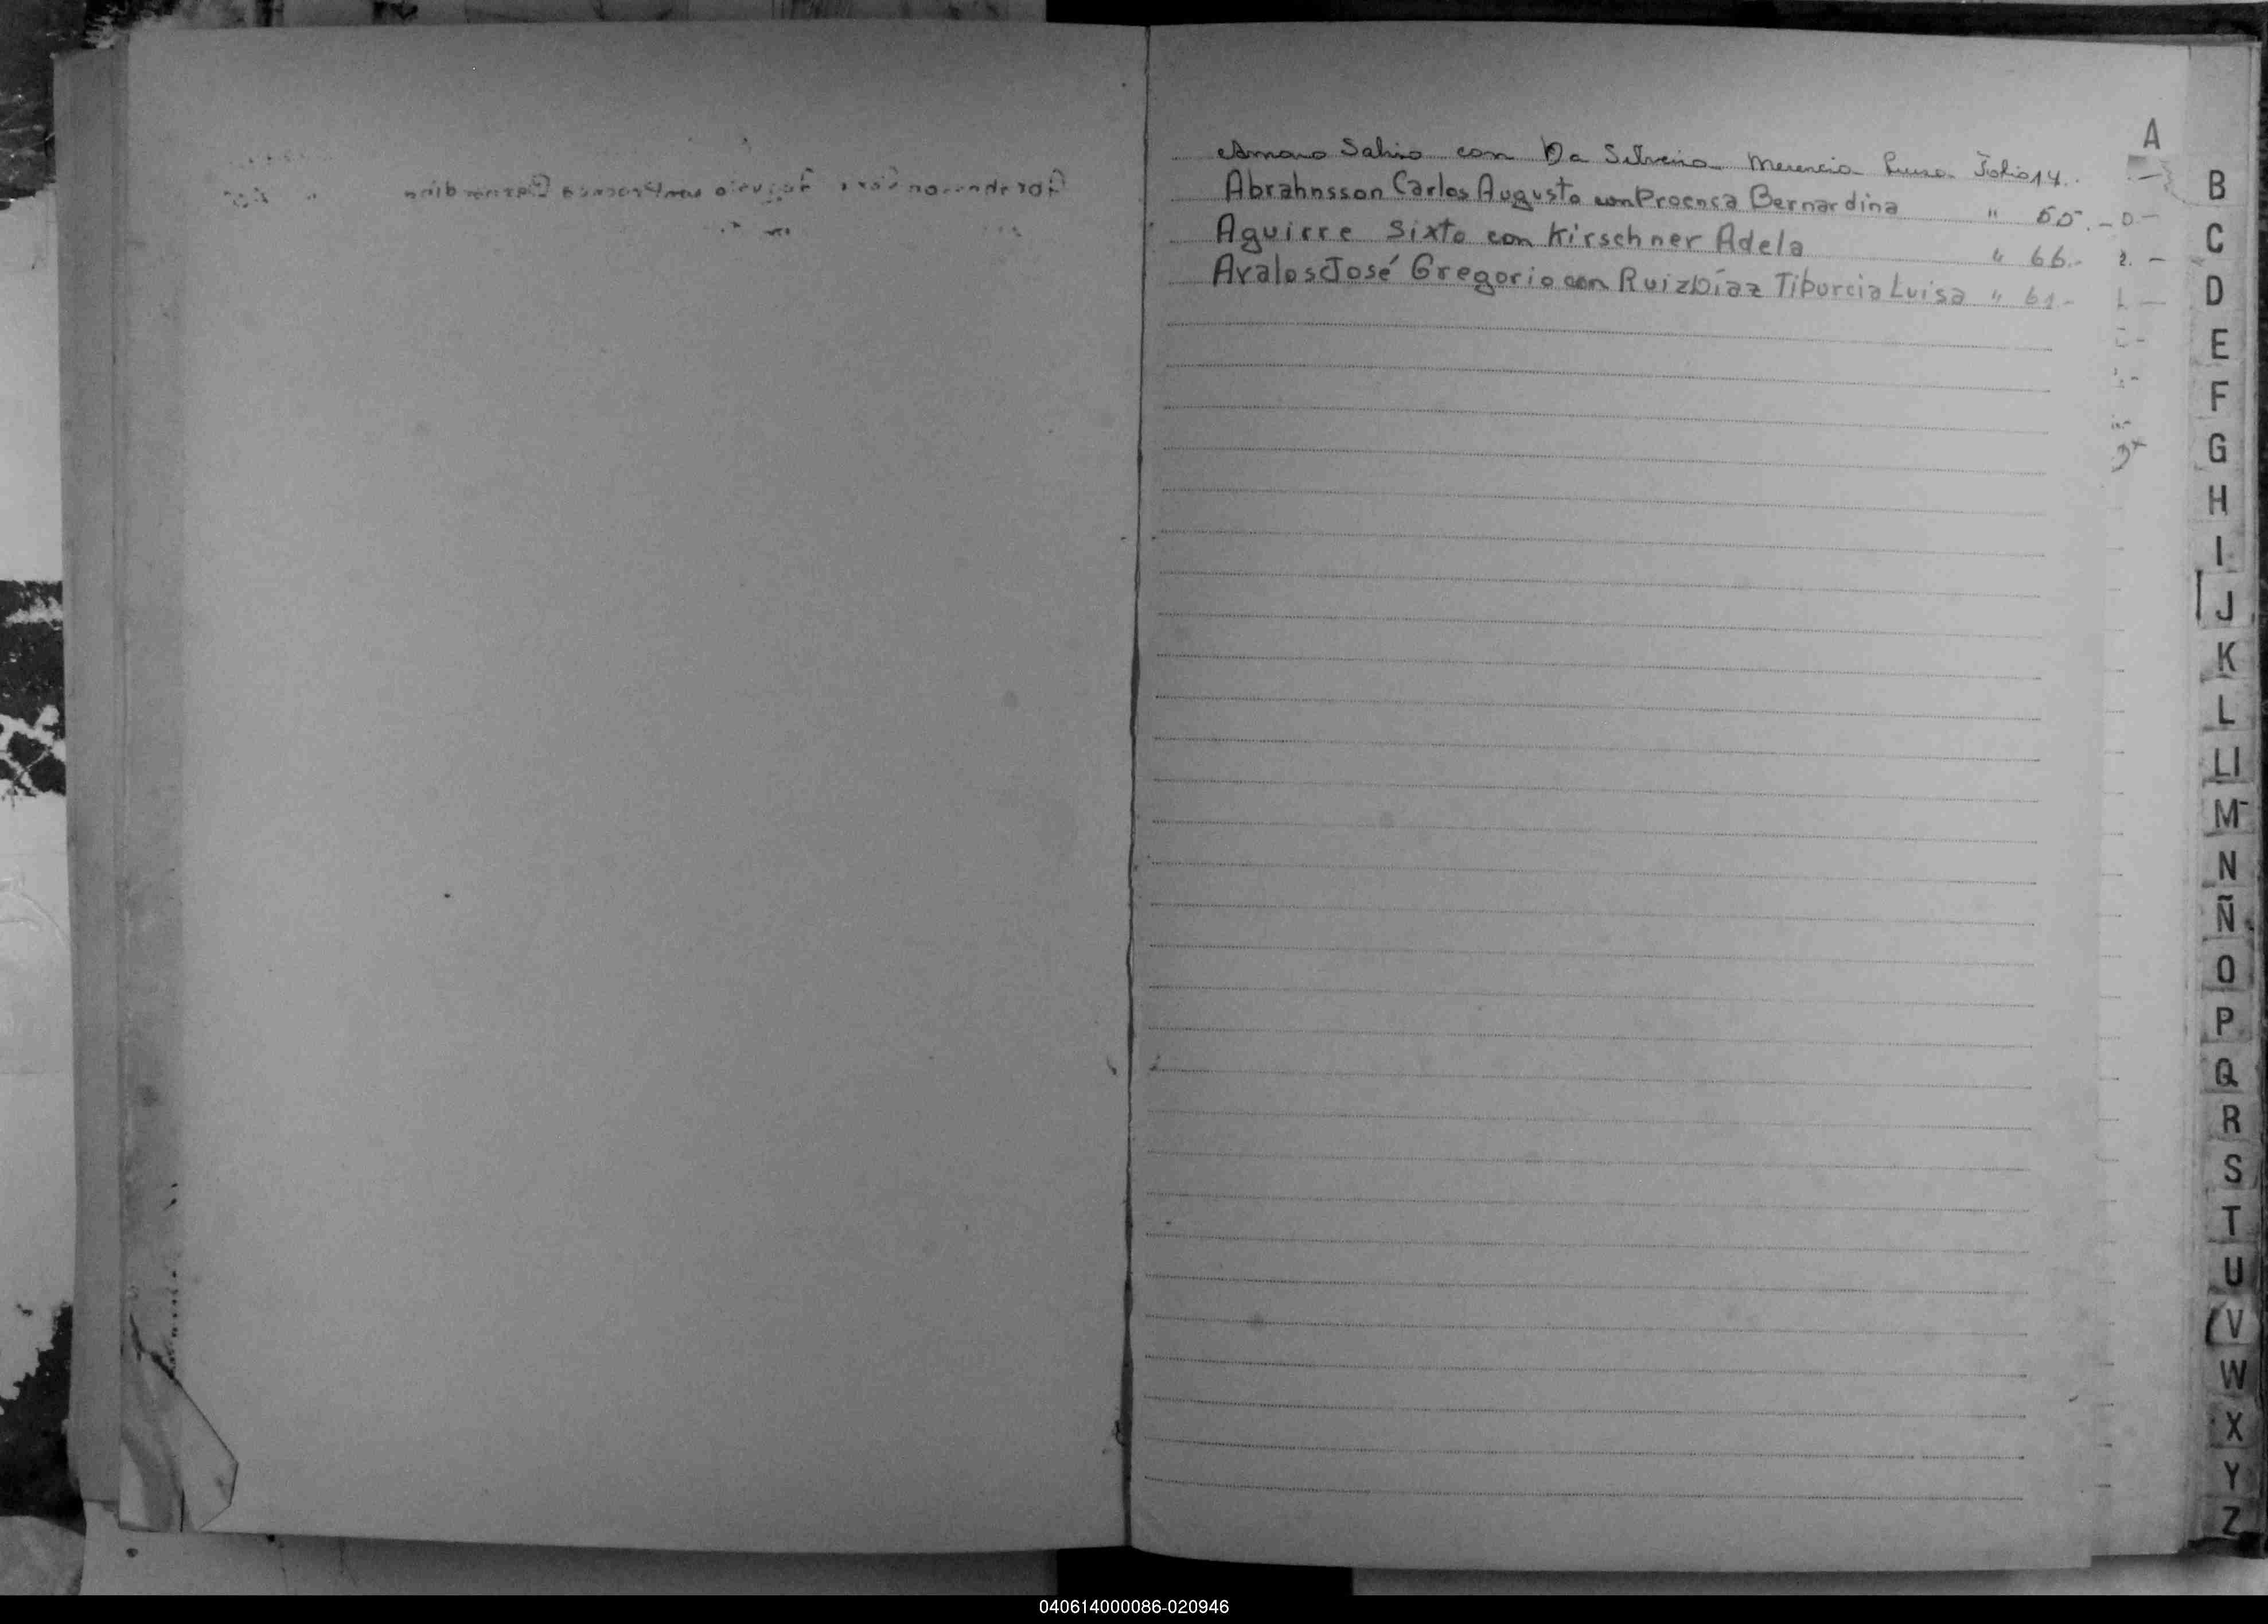 A
Amaro Sabino con Da Silveira Merencia Luisa Folio 14.
Abrahnsson Carlos Augusto con Proenca Bernardina " 55.
Aguirre Sixto con Kirschner Adela " 66.-
Avalos José Gregorio con Ruiz Díaz Tiburcia Luisa " 61-
B
C
D
E
F
G
H
I
J
K
L
Ll
M
N
Ñ
O
P
Q
R
S
T
U
V
W
X
Y
Z
040614000086-020946